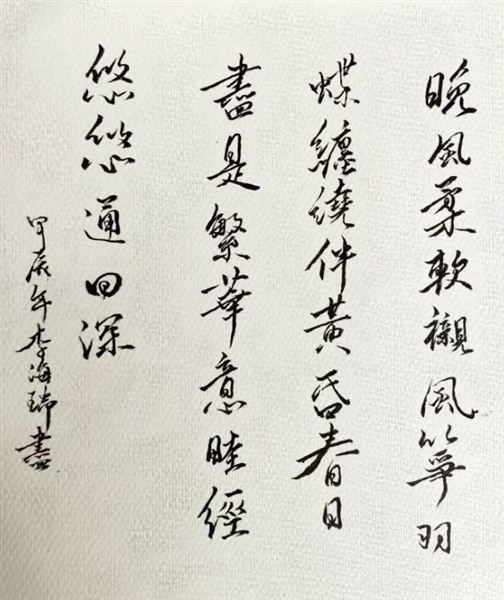 晚風柔軟襯風箏羽
蝶纏繞伴黃昏春日
盡是繁華意畦經
悠悠通深
甲辰年李海瑞書